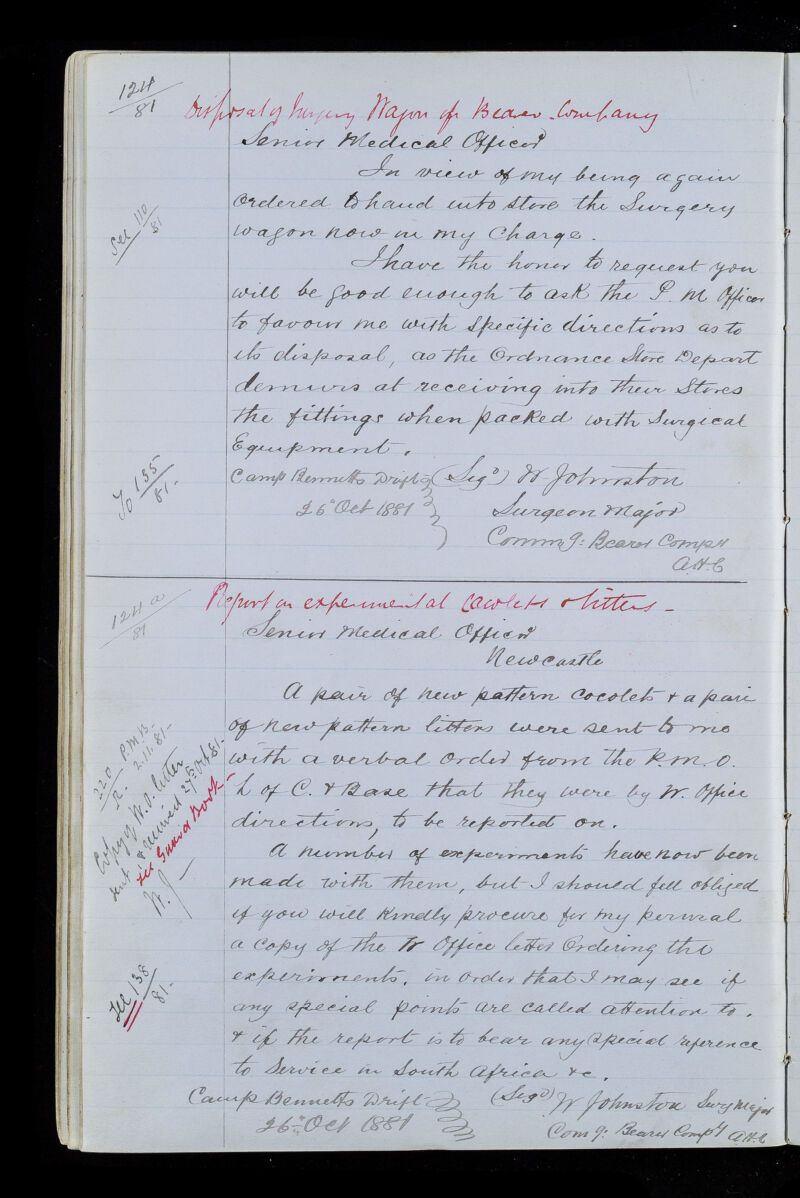 124
81
Disposal of Surgery Wagon of Bearer Company
Senior Medical Officer
In view of my being again
ordered to hand into store the Surgery
wagon now in my Charge.
See 110
81
I have the honor to request you
will be good enough to ask the P. M Officer
to favour me with Specific directions as to
its disposal, as the Ordnance Store Depart
demurs at receiving into their Stores
the fittings when packed with Surgical
Equipment.
To 135
81-
Camp Bennetts Drift
26" Oct 1881
(Sigd) W Johnston
Surgeon Major
Commg: Bearer Compy
A.H.C
124a
81
Report on experimental Cacolets & litters -
Senior Medical Officer
Newcastle
A pair of new pattern cocolets & a pair
of new pattern litters were sent to me
with a verbal order from the P.M.O.
L of C. & Base that they were by W. Office
directions, to be reported on.
220 P.M.B-
2.11.81-
Copy of W.O. letter
sent & received 27th Oct 81.-
See Guard Book-
W.J-
A number of experiments have now been
made with them, but I should fell obliged
if you will Kindly procure for my perusal
a copy of the W Office letter Ordering the
experiments. in order that I may see if
any special points are called attention to.
& if the report is to bear any special reference
to Service in South Africa &c.
See 138
81-
Camp Bennetts Drift
26th Oct 1881
(Sigd) W Johnston Surg Major
Comg: Bearer Compy A.H.C